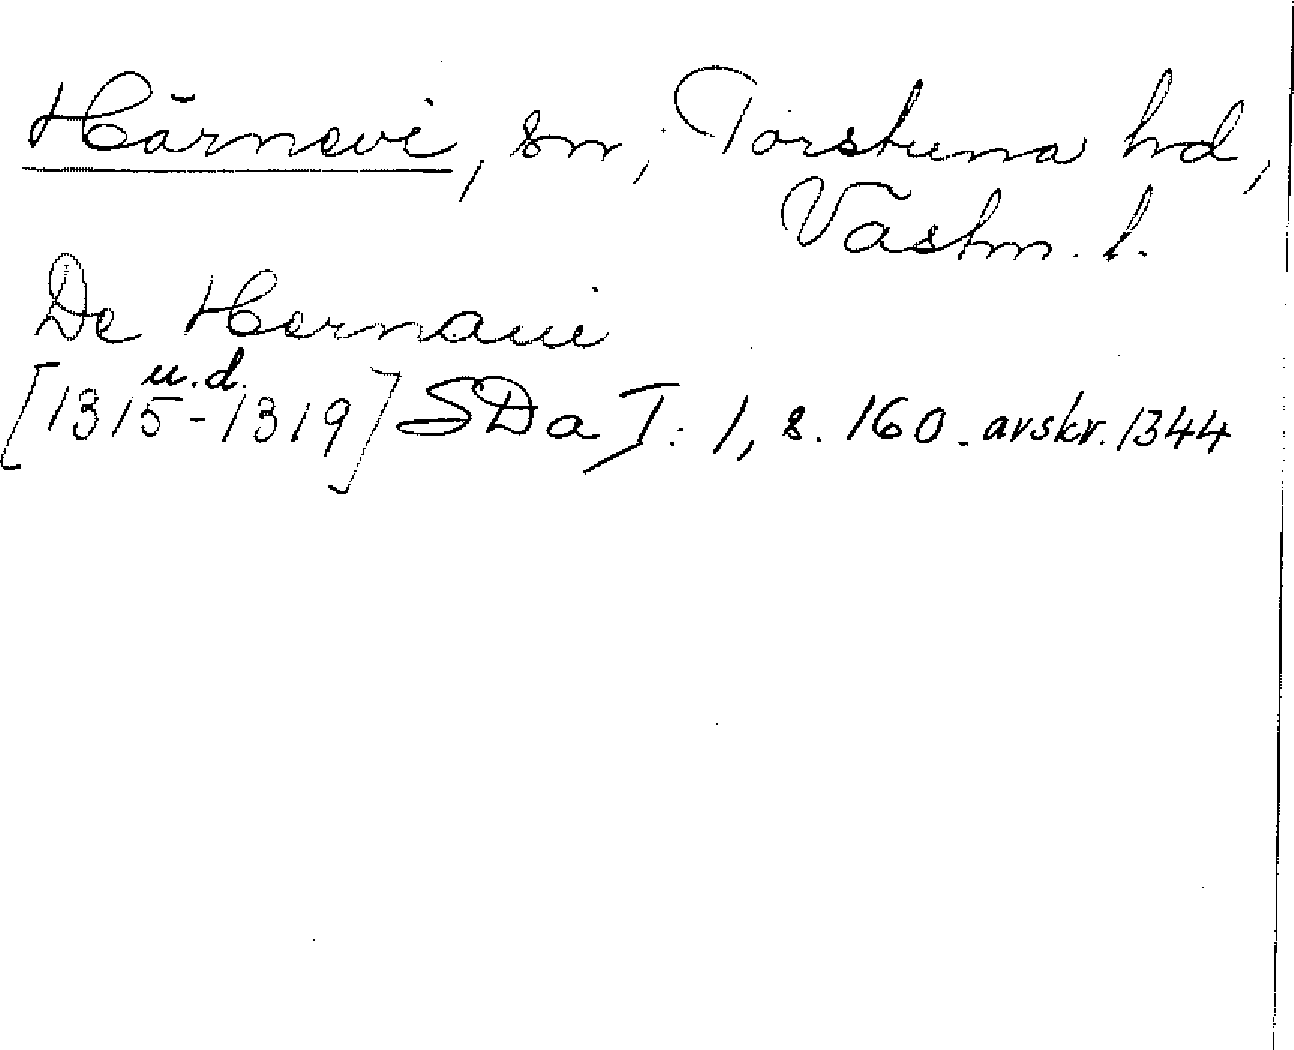 Härnevi, sn, Torstuna hd,
Västm. l.
De Hernaui
u.d.
[1315-1319] SDa I: 1, s. 160. avskr. 1344